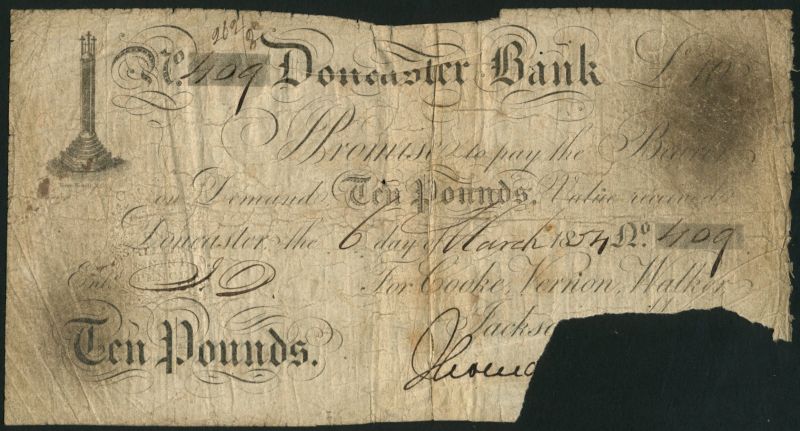 2621
No. 409 Doncaster Bank £10
I Promise to pay the Bearer
on Demand Ten Pounds. Value received
Doncaster the 6 day of March 1804 No. 409
Entd. J.D For Cooke, Vernon, Walker
Jackson
Ten Pounds.